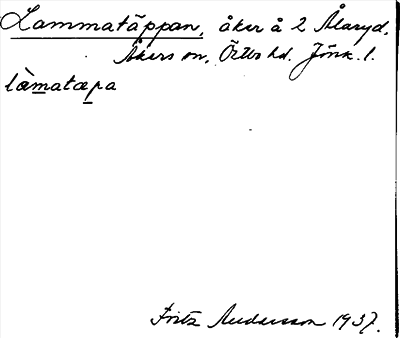 Lammatäppan, åker å 2 Ålaryd,
Åkers sn, Östbo hd. Jönk. l.
làmatæpa
Fritz Andersson 1937.